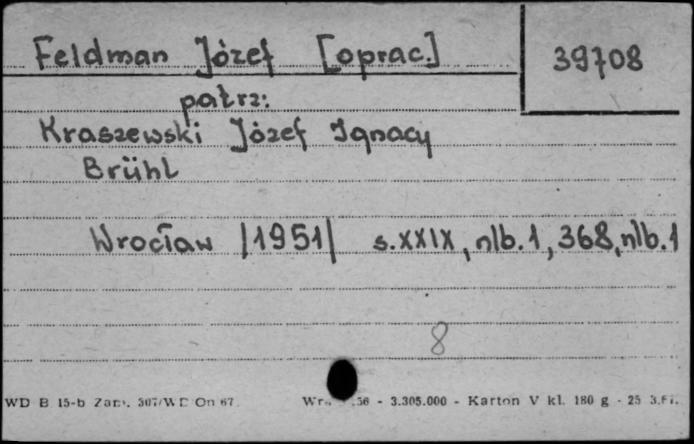 Feldman Józef [oprac.]
39708
patrz:
Kraszewski Józef Ignacy
Brühl
Wrocław /1951/ s.XXIX, nlb.1, 368, nlb.1
8
WD B 15-b Zam. 307/WD On 67 56 - 3.305.000 - Karton V kl. 180 g - 25